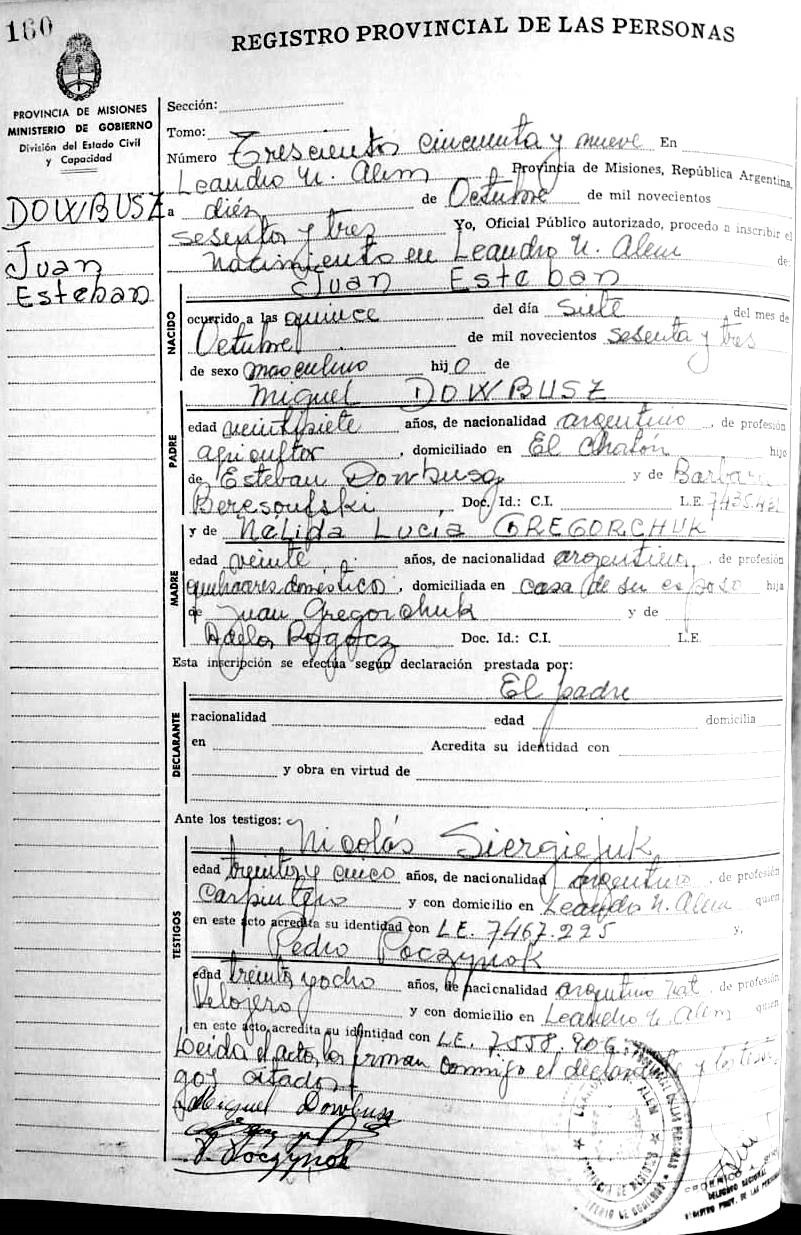 160
REGISTRO PROVINCIAL DE LAS PERSONAS
PROVINCIA DE MISIONES
MINISTERIO DE GOBIERNO
División del Estado Civil
y Capacidad
DOWBUSZ
Juan
Esteban
Sección:
Tomo:
Número Trescientos cincuenta y nueve En
Leandro N. Alem Provincia de Misiones, República Argentina,
a diéz de Octubre de mil novecientos
sesenta y tres Yo, Oficial Público autorizado, procedo a inscribir el
nacimiento en Leandro N. Alem de:
Juan Esteban
NACIDO
ocurrido a las quince del día siete del mes de
Octubre de mil novecientos sesenta y tres
de sexo masculino hijo de
Miguel DOWBUSZ
PADRE
edad veintisiete años, de nacionalidad argentino, de profesión
agricultor, domiciliado en El Chatón hijo
de Esteban Dowbusz y de Barbara
Beresoufski Doc. Id.: C.I. L.E. 7435.4
y de Nelida Lucia GREGORCHUK
MADRE
edad veinte años, de nacionalidad argentina, de profesión
quehaceres domestico, domiciliada en casa de su esposo hija
de Juan Gregorchuk y de
Adela Rogocz Doc. Id.: C.I. L.E.
Esta inscripción se efectúa según declaración prestada por:
El padre
DECLARANTE
nacionalidad edad domicilia
en Acredita su identidad con
y obra en virtud de
Ante los testigos:
Nicolás Siergiejuk
TESTIGOS
edad treinta y cinco años, de nacionalidad argentino, de profesión
Carpintero y con domicilio en Leandro N. Alem quien
en este acto acredita su identidad con L.E. 7467.225 y,
Pedro Poczynok
edad treinta y ocho años, de nacionalidad argentino Nat. de profesión
Relojero y con domicilio en Leandro N. Alem quien
en este acto acredita su identidad con L.E. 7558.906.
Leida el acta, la firman conmigo el declarante y los testi-
gos citados
Miguel Dowbusz
P. Poczynok